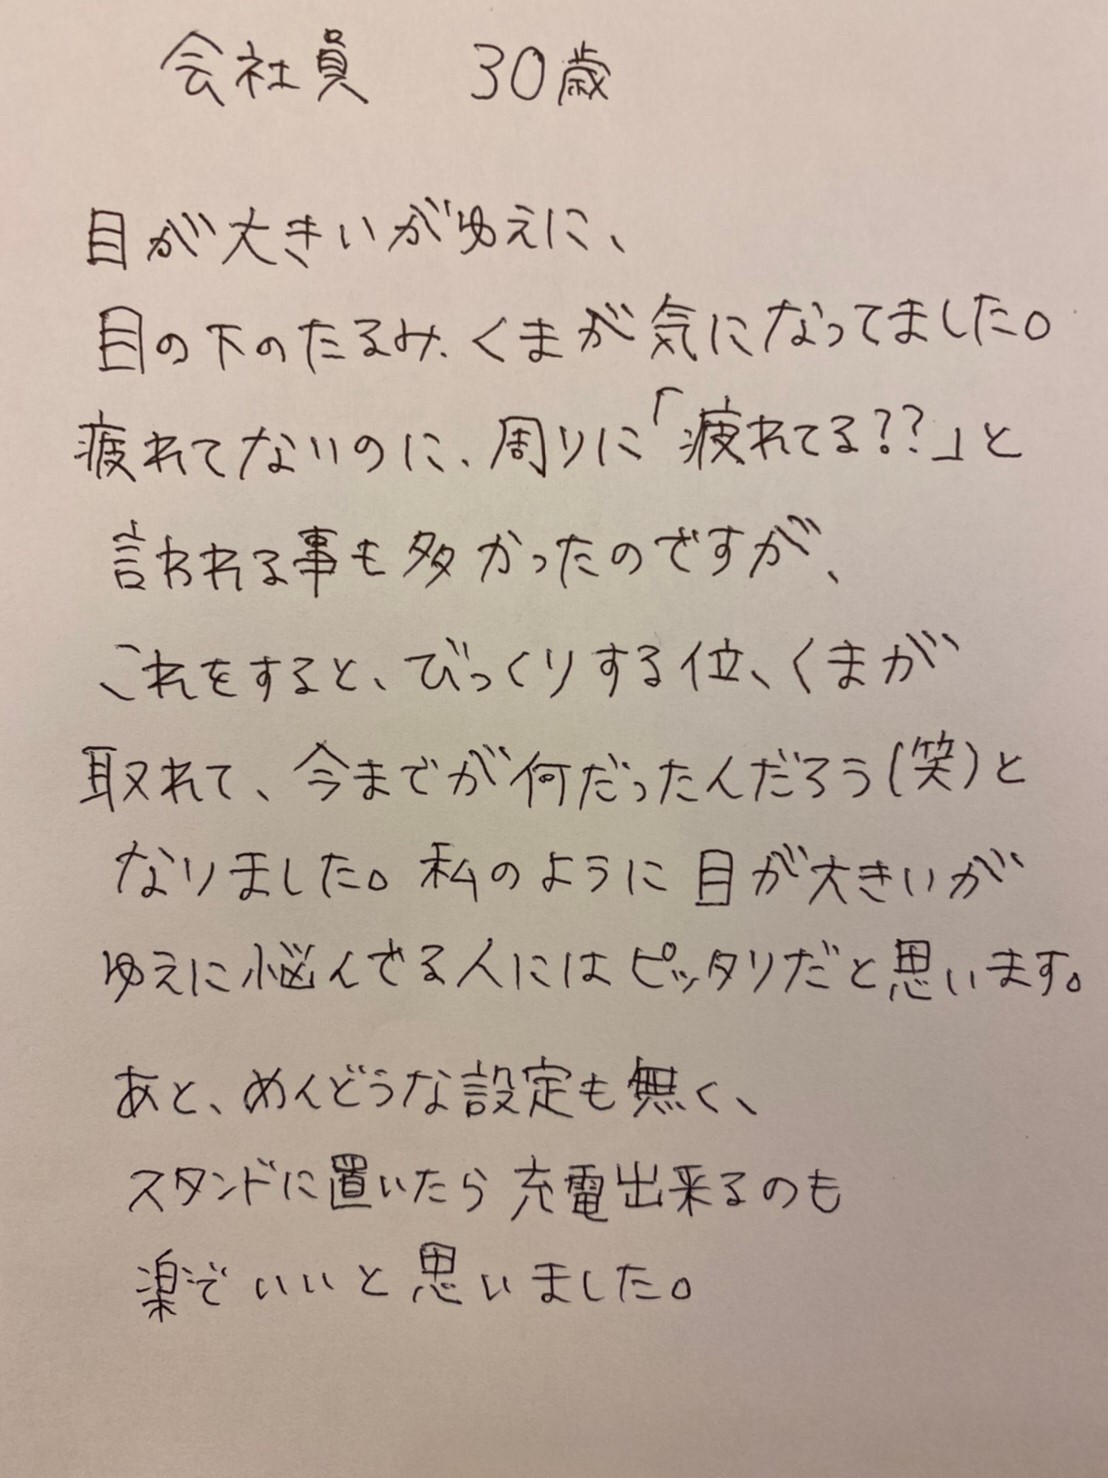 会社員 30歳
目が大きいがゆえに、
目の下のたるみ、くまが気になってました。
疲れてないのに、周りに「疲れてる??」と
言われる事も多かったのですが、
これをすると、びっくりする位、くまが
取れて、今までが何だったんだろう(笑)と
なりました。私のように目が大きいが
ゆえに悩んでる人にはピッタリだと思います。
あと、めんどうな設定も無く、
スタンドに置いたら充電出来るのも
楽でいいと思いました。